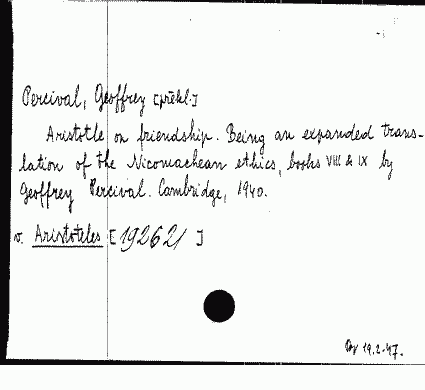 Percival, Geoffrey [překl.]
Aristotle on friendship. Being an expanded trans-
lation of the Nicomachean ethics, books VIII & IX by
Geoffrey Percival. Cambridge, 1940.
v. Aristoteles [192621]
19.2.47.